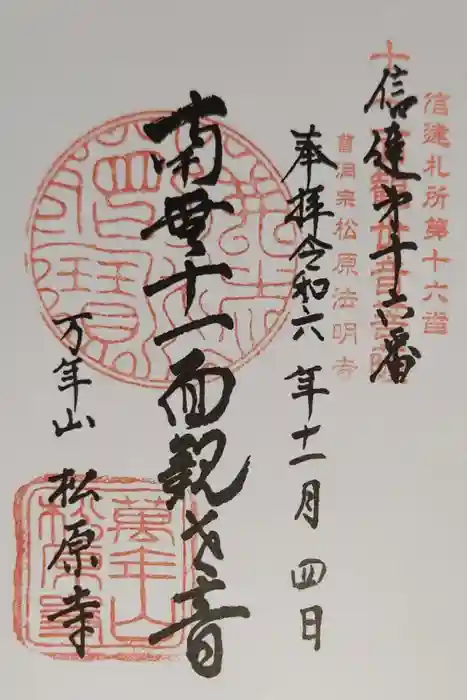 信達札所第十六番
信達第十六番
十一面観世音菩薩
曹洞宗松原法明寺
奉拝令和六年十一月四日
南無十一面観世音
万年山 松原寺
萬年山
松原寺